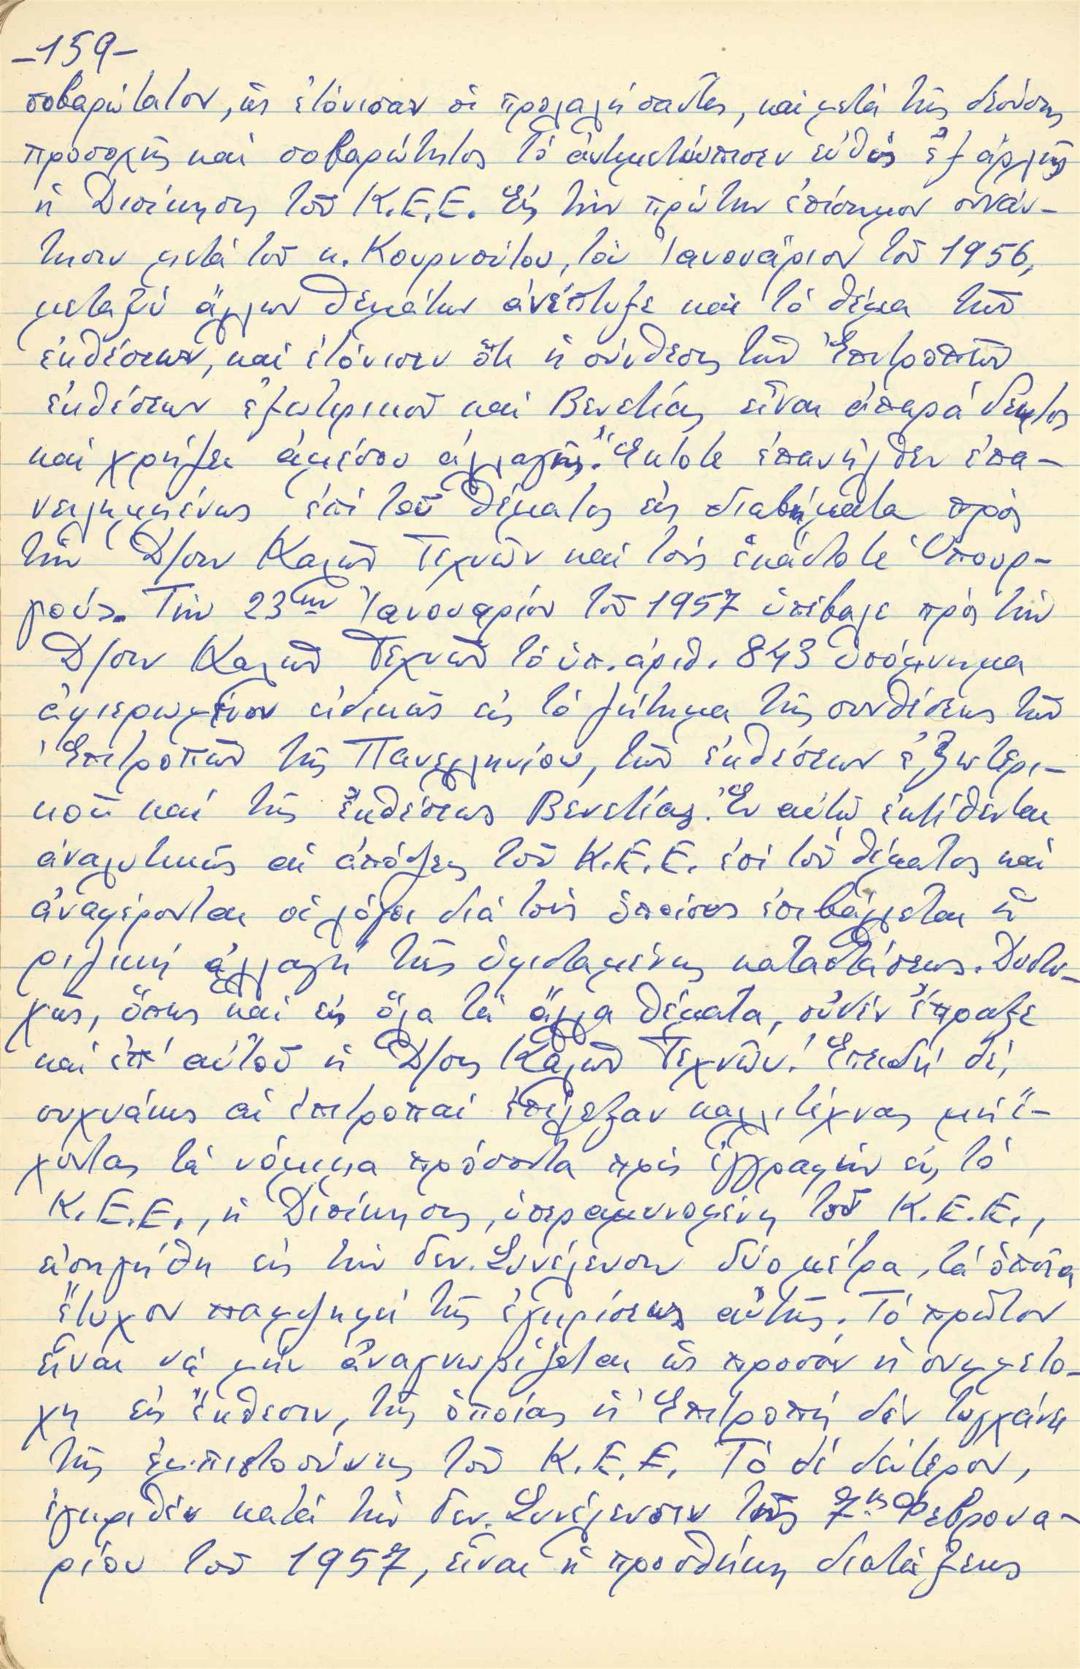 -159-
σοβαρώτατον, ὡς ἐτόνισαν οἱ προλαλήσαντες, καὶ μετὰ τῆς δεούσης
προσοχῆς καὶ σοβαρότητος τὸ ἀντιμετώπισεν εὐθὺς ἐξ ἀρχῆς
ἡ Διοίκησις τοῦ Κ.Ε.Ε. Εἰς τὴν πρώτην ἐπίσημον συνάν-
τησιν μετὰ τοῦ κ. Κουρνούτου, τὸν Ἰανουάριον τοῦ 1956,
μεταξὺ ἄλλων θεμάτων ἀνέπτυξε καὶ τὸ θέμα τῶν
ἐκθέσεων, καὶ ἐτόνισεν ὅτι ἡ σύνθεσις τῶν Ἐπιτροπῶν
ἐκθέσεων ἐξωτερικοῦ καὶ Βενετίας εἶναι ἀπαράδεκτος
καὶ χρήζει ἀμέσου ἀλλαγῆς. Ἔκτοτε ἐπανῆλθεν ἐπα-
νειλημμένως ἐπὶ τοῦ θέματος εἰς διαβήματα πρὸς
τὴν Δ/σιν Καλῶν Τεχνῶν καὶ τοὺς ἑκάστοτε Ὑπουρ-
γούς. Τὴν 23ην Ἰανουαρίου τοῦ 1957 ὑπέβαλε πρὸς τὴν
Δ/σιν Καλῶν Τεχνῶν τὸ ὑπ. ἀριθ. 843 ὑπόμνημα
ἀφιερωμένον εἰδικῶς εἰς τὸ ζήτημα τῆς συνθέσεως τῶν
Ἐπιτροπῶν τῆς Πανελληνίου, τῶν ἐκθέσεων ἐξωτερι-
κοῦ καὶ τῆς Ἐκθέσεως Βενετίας. Ἐν αὐτῷ ἐκτίθενται
ἀναλυτικῶς αἱ ἀπόψεις τοῦ Κ.Ε.Ε. ἐπὶ τοῦ θέματος καὶ
ἀναφέρονται οἱ λόγοι διὰ τοὺς ὁποίους ἐπιβάλλεται ἡ
ριζικὴ ἀλλαγὴ τῆς ὑφισταμένης καταστάσεως. Δυστυ-
χῶς, ὅπως καὶ εἰς ὅλα τὰ ἄλλα θέματα, οὐδὲν ἔπραξε
καὶ ἐπ' αὐτοῦ ἡ Δ/σις Καλῶν Τεχνῶν. Ἐπειδὴ δέ,
συχνάκις αἱ ἐπιτροπαὶ ἐπέλεξαν καλλιτέχνας μὴ ἔ-
χοντας τὰ νόμιμα προσόντα πρὸς ἐγγραφὴν εἰς τὸ
Κ.Ε.Ε., ἡ Διοίκησις, ὑπεραμυνομένη τοῦ Κ.Ε.Ε.,
εἰσηγήθη εἰς τὴν Γεν. Συνέλευσιν δύο μέτρα, τὰ ὁποῖα
ἔτυχον παμψηφεὶ τῆς ἐγκρίσεως αὐτῆς. Τὸ πρῶτον
εἶναι νὰ μὴν ἀναγνωρίζεται ὡς προσὸν ἡ συμμετο-
χὴ εἰς ἔκθεσιν, τῆς ὁποίας ἡ Ἐπιτροπὴ δὲν τυγχάνει
τῆς ἐμπιστοσύνης τοῦ Κ.Ε.Ε. Τὸ δὲ δεύτερον,
ἐγκριθὲν κατὰ τὴν Γεν. Συνέλευσιν τῆς 7ης Φεβρουα-
ρίου τοῦ 1957, εἶναι ἡ προσθήκη διατάξεως